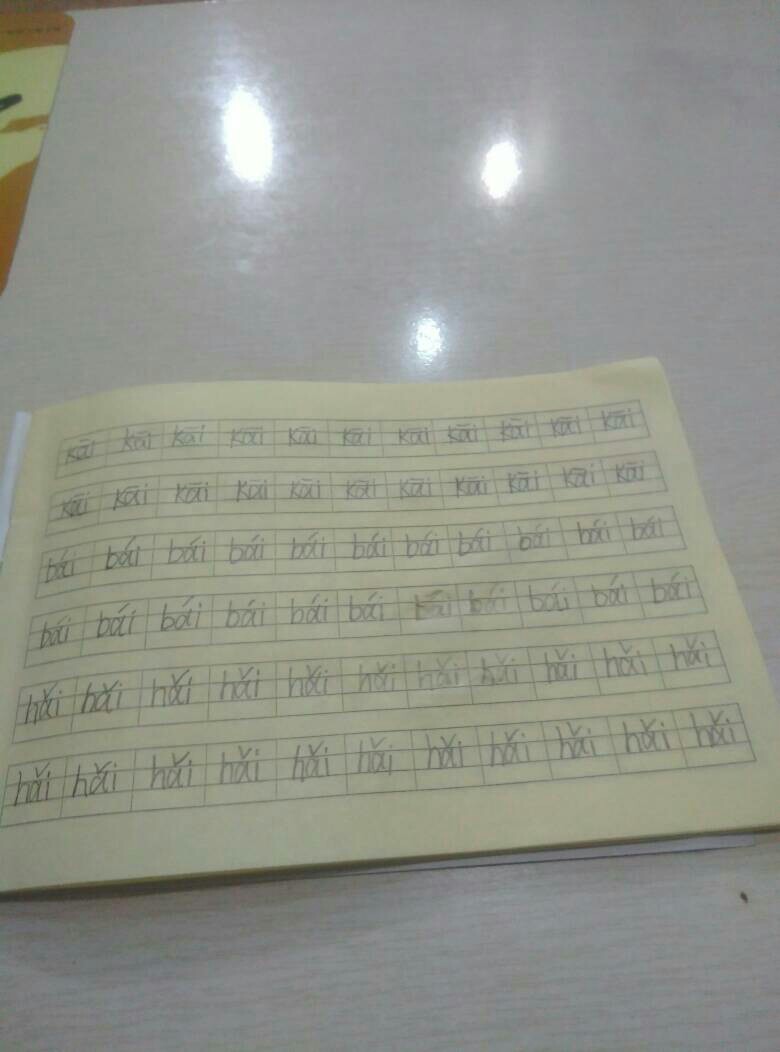 kāi kāi kāi kāi kāi kāi kāi kāi kāi kāi kāi
kāi kāi kāi kāi kāi kāi kāi kāi kāi kāi kāi
bái bái bái bái bái bái bái bái bái bái bái
bái bái bái bái bái bái bái bái bái bái bái
hǎi hǎi hǎi hǎi hǎi hǎi hǎi hǎi hǎi hǎi hǎi
hǎi hǎi hǎi hǎi hǎi hǎi hǎi hǎi hǎi hǎi hǎi